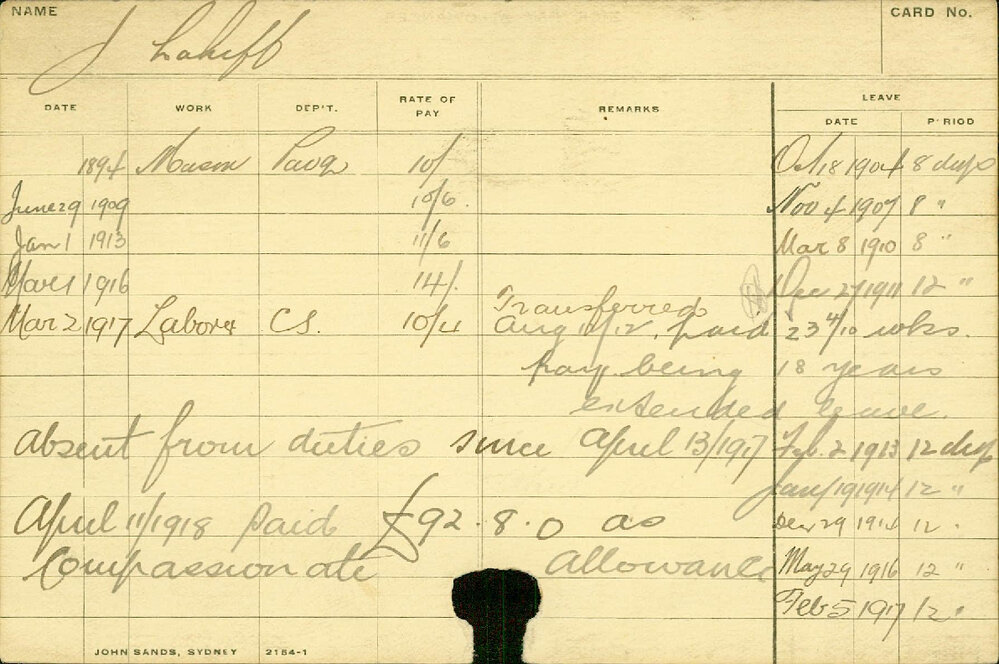 NAME J Lahiff CARD No.
DATE WORK DEP'T. RATE OF PAY REMARKS LEAVE DATE PERIOD
1894 Mason Pavg 10/ Oct 18 1904 8 days
June 29 1909 10/6 Nov 4 1907 8 "
Jan 1 1913 11/6 Mar 8 1910 8 "
1916 14/. Dec 27 1911 12 "
Transferred
Mar 2 1917 Laborer CS. 10/4 Aug 11/12. paid 23 4/10 wks.
pay being 18 years
extended leave.
absent from duties since April 13/1917 Feb. 2 1913 12 days
Jany 19 1914 12 "
April 11/1918 Paid £92.8.0 as Dec 29 1914 12 "
Compassionate Allowance May 29 1916 12 "
Feb 5 1917 12 "
JOHN SANDS, SYDNEY 2154-1